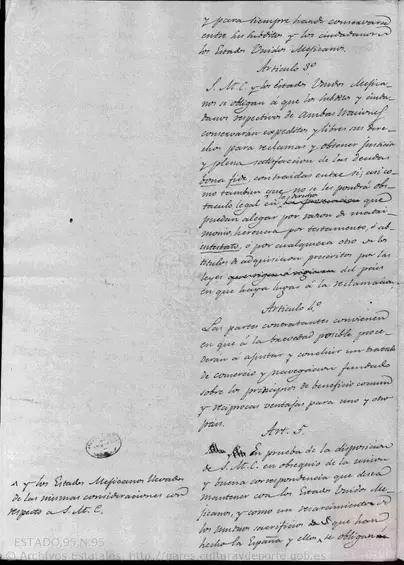 y para siempre han de conservarse
entre los súbditos y los ciudadanos de
los Estados Unidos Mejicanos.
Articulo 3º
S. M. C. y los Estados Unidos Mejica-
nos se obligan á que los subditos y ciuda-
danos respectivos de Ambas Naciones
conserváran expeditos y libres sus dere-
chos para reclamar y obtener Justicia
y plena satisfaccion de las deudas
bona fide, contraidas entre si; asi co-
mo tambien que no se les pondrá obs-
taculo legal en que
puedan alegar por razon de matri-
monio, herencia por testamento, ó ab
intestato, ó por cualquiera otro de los
titulos de adquisicion prescritos por las
leyes del pais
en que haya lugar á la reclamacion.
Articulo 4º
Las partes contratantes convienen
en que á la brevedad posible proce-
deran á ajustar y concluir un tratado
de comercio y navegacion fundado
sobre los principios de beneficio comun
y reciprocas ventajas para uno y otro
pais.
Art. 5.
En prueba de la disposicion
de S. M. C. en obsequio de la union
y buena correspondencia que desea
mantener con los Estados Unidos Me-
jicanos, y como un resarcimiento á
los sacrificios que han
hecho la España y ellos, se obligan
^ y los Estados Mejicanos llevados
de las mismas consideraciones con
respecto a S. M. C.
ESTADO,95,N.95
© Archivos estatales, http://pares.culturaydeporte.gob.es